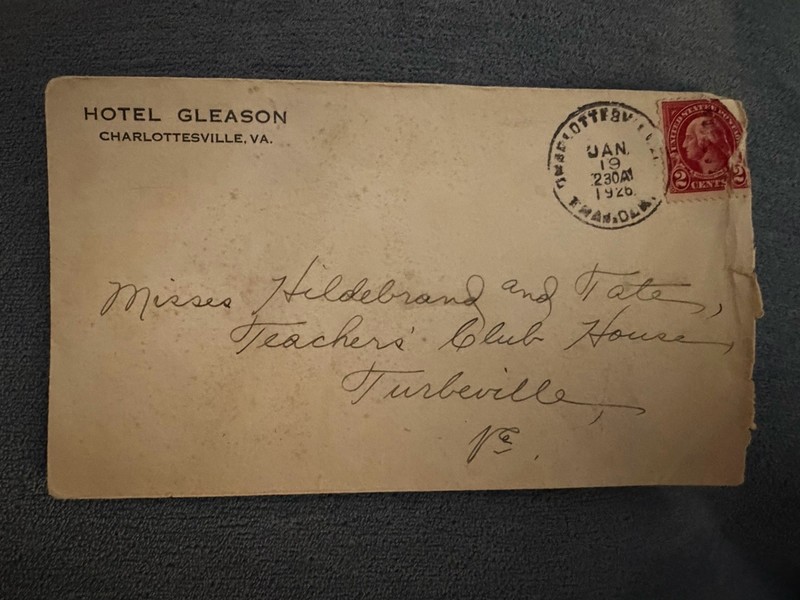 HOTEL GLEASON
CHARLOTTESVILLE, VA.
CHARLOTTESVILLE, VA.
JAN.
19
230 AM
1926
TRAN. CLK.
UNITED STATES POSTAGE
2 CENTS 2
Misses Hildebrand and Tate,
Teachers' Club House,
Turbeville,
Va.